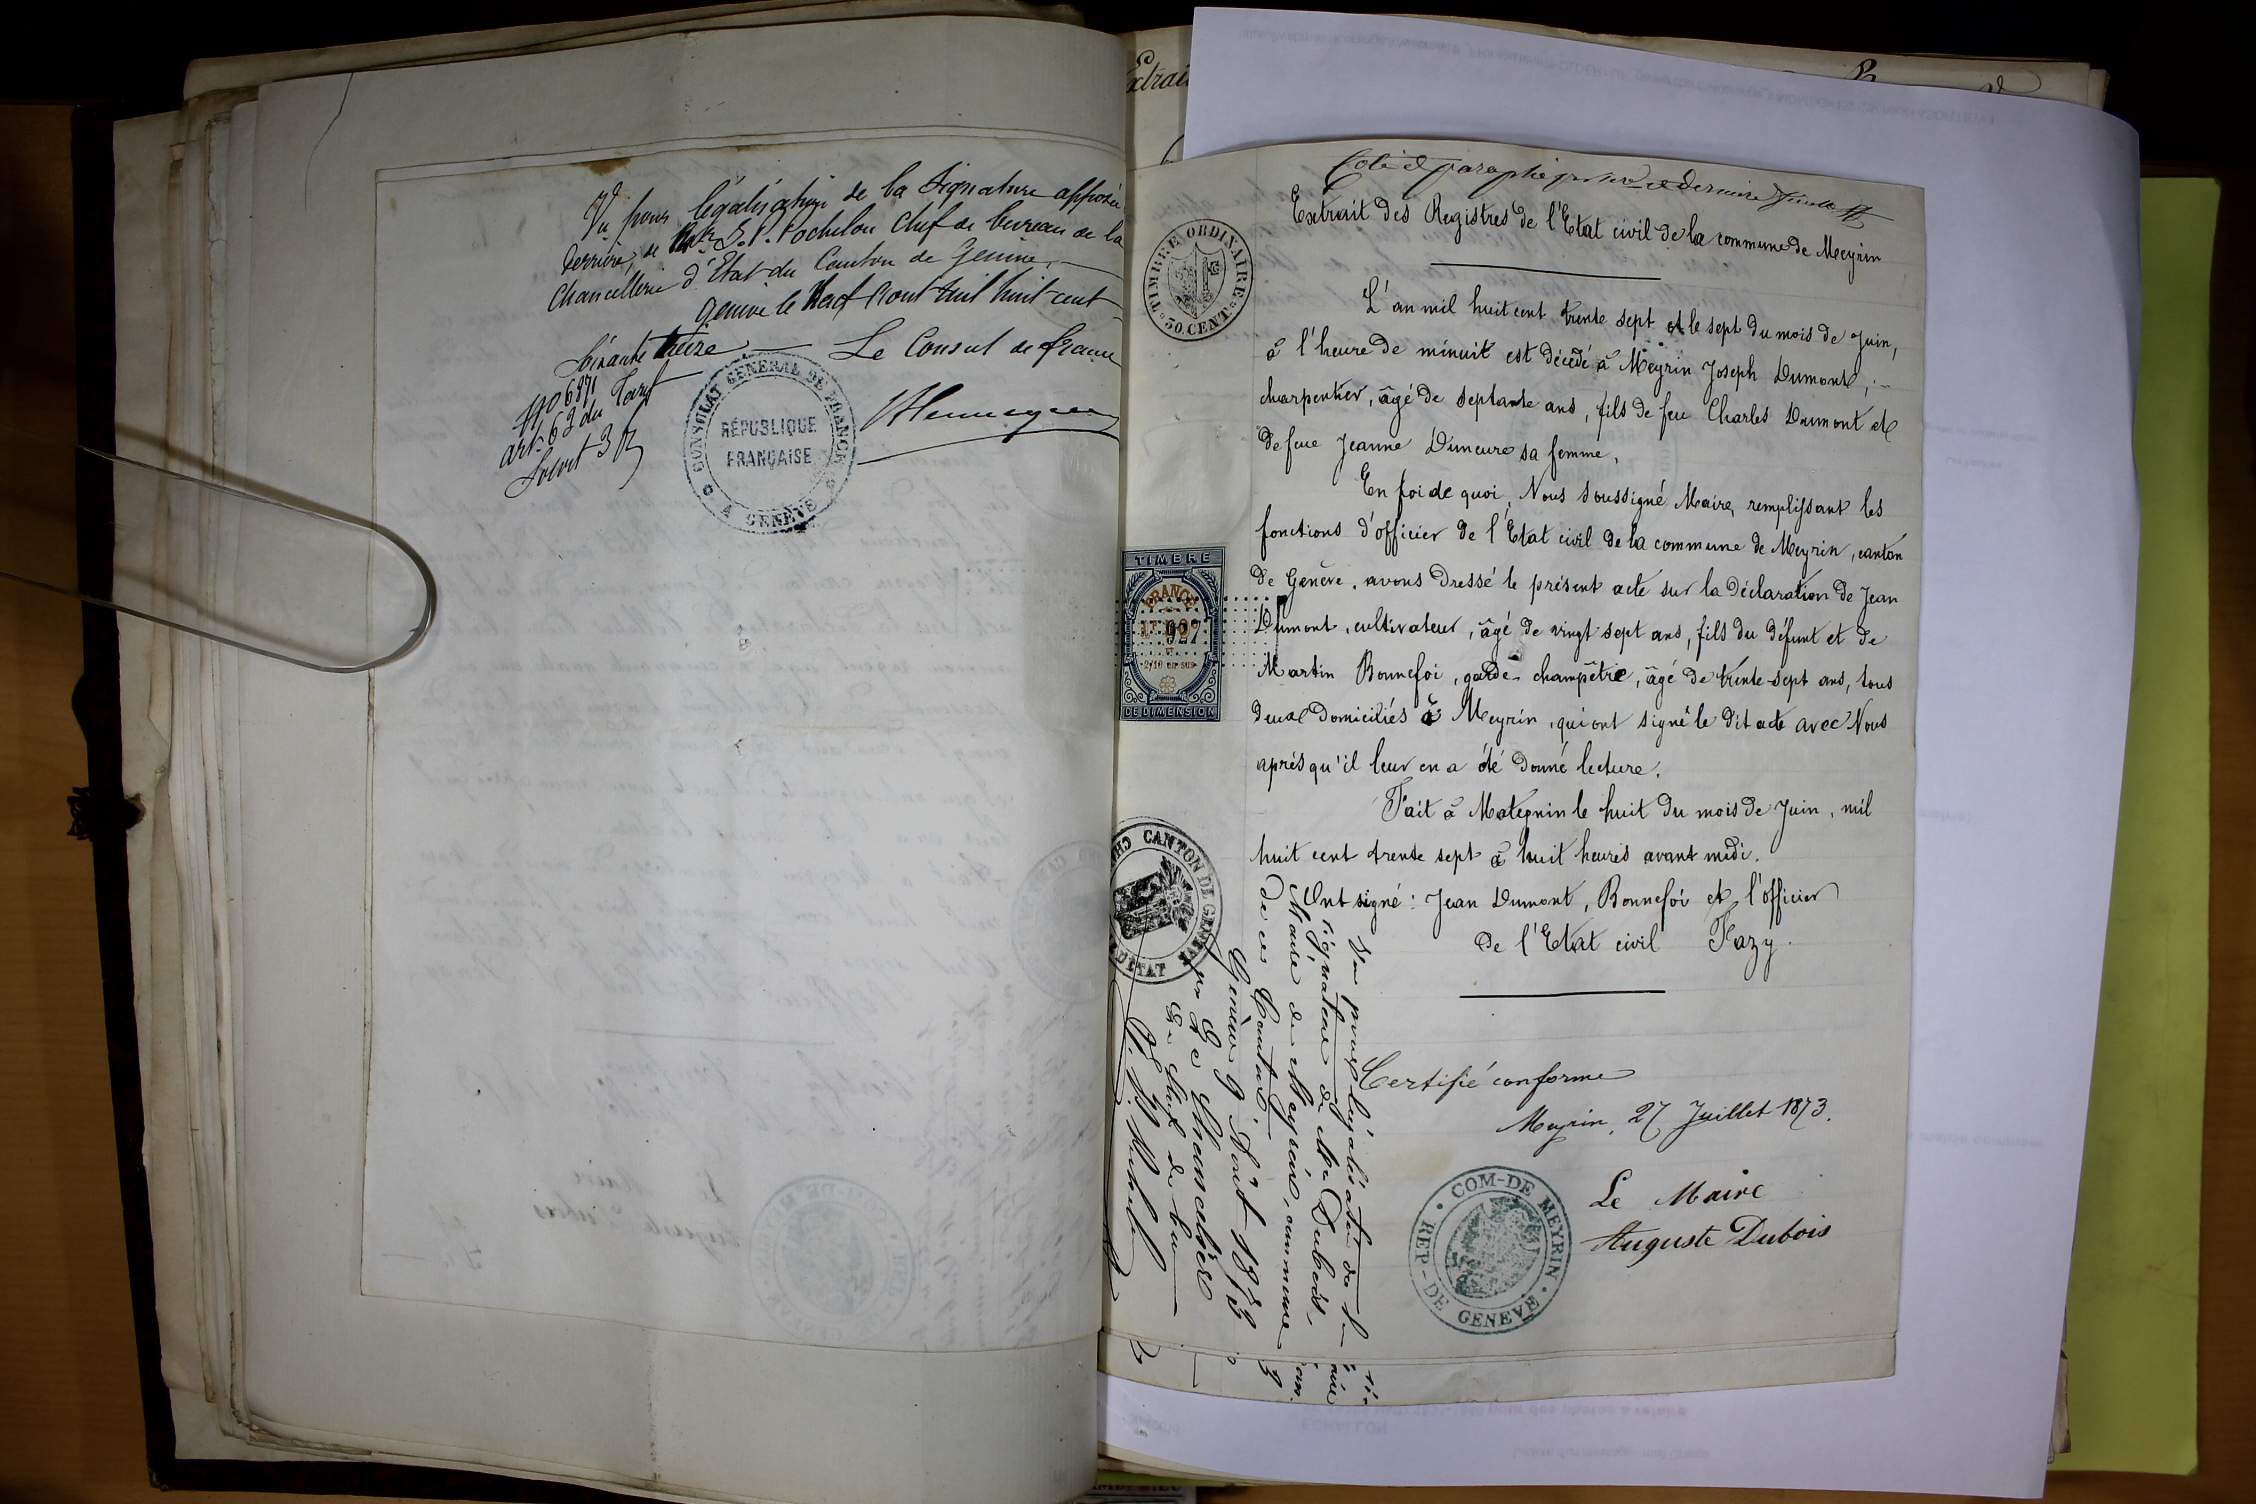 Vu pour légalisation de la signature apposée
derrière, de Mr J. P. Pochelon Chef de bureau de la
Chancellerie d'Etat du Canton de Genève,
Genève le Neuf Aout mil huit cent
soixante treize Le Consul de france
No 6871
art. 62 du Tarif
CONSULAT GENERAL DE FRANCE
RÉPUBLIQUE
FRANÇAISE
A GENÈVE
Extrait
Coté & paraphé et dernière
Extrait des Registres de l'Etat civil de la commune de Meyrin
TIMBRE ORDINAIRE
30 CENT.
L'an mil huit cent trente sept et le sept du mois de Juin,
à l'heure de minuit est décédé à Meyrin Joseph Dumont,
charpentier, âgé de septante ans, fils de feu Charles Dumont et
de feue Jeanne Dimeure sa femme.
En foi de quoi, Nous soussigné Maire, remplissant les
fonctions d'officier de l'Etat civil de la commune de Meyrin, canton
de Genève, avons dressé le présent acte sur la déclaration de Jean
Dumont, cultivateur, âgé de vingt sept ans, fils du défunt et de
Martin Bonnefoi, garde-champêtre, âgé de trente-sept ans, tous
deux domiciliés à Meyrin, qui ont signé le dit acte avec Nous
après qu'il leur en a été donné lecture.
Fait à Mategnin le huit du mois de Juin, mil
huit cent trente sept à huit heures avant midi.
Ont signé : Jean Dumont, Bonnefoi et l'officier
de l'Etat civil Fazy.
TIMBRE
FRANCE
927
2/10 en sus
DE DIMENSION
CANTON DE GENEVE
D'ETAT
Vu pour légalisation de la
signature de Mr Dubois,
Maire de Meyrin, commune
de ce Canton
Genève 9 Août 1873
pr Le Chancelier
Le Chef de bau
Certifié conforme
Meyrin, 27 Juillet 1873.
Le Maire
Auguste Dubois
COM-DE MEYRIN
REP-DE GENEVE